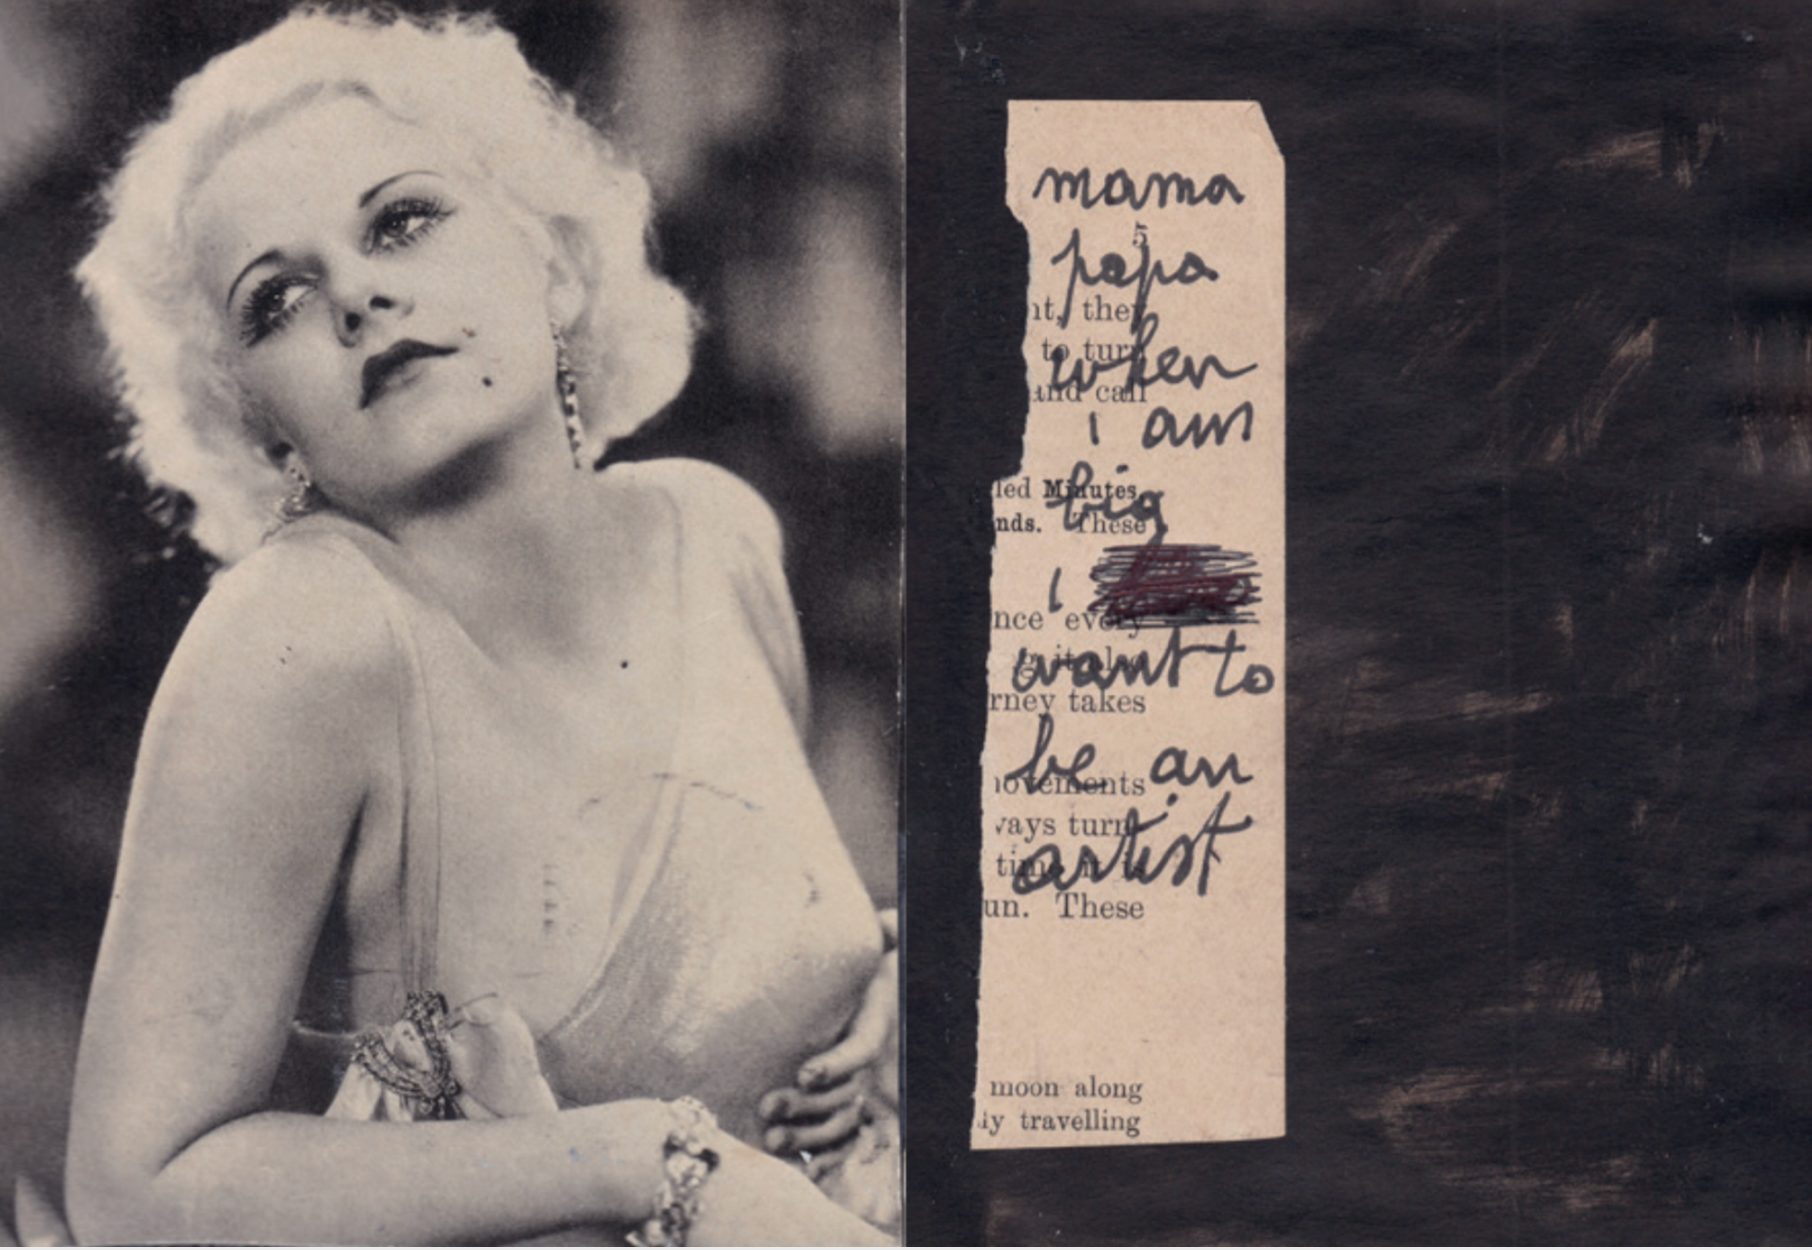 mama
5
papa
nt, they
to turn
and call
when
i am
led Minutes,
big
nds. These
i
nce every
want to
rney takes
be an
ovements
ways turn
artist
un. These
moon along
ly travelling